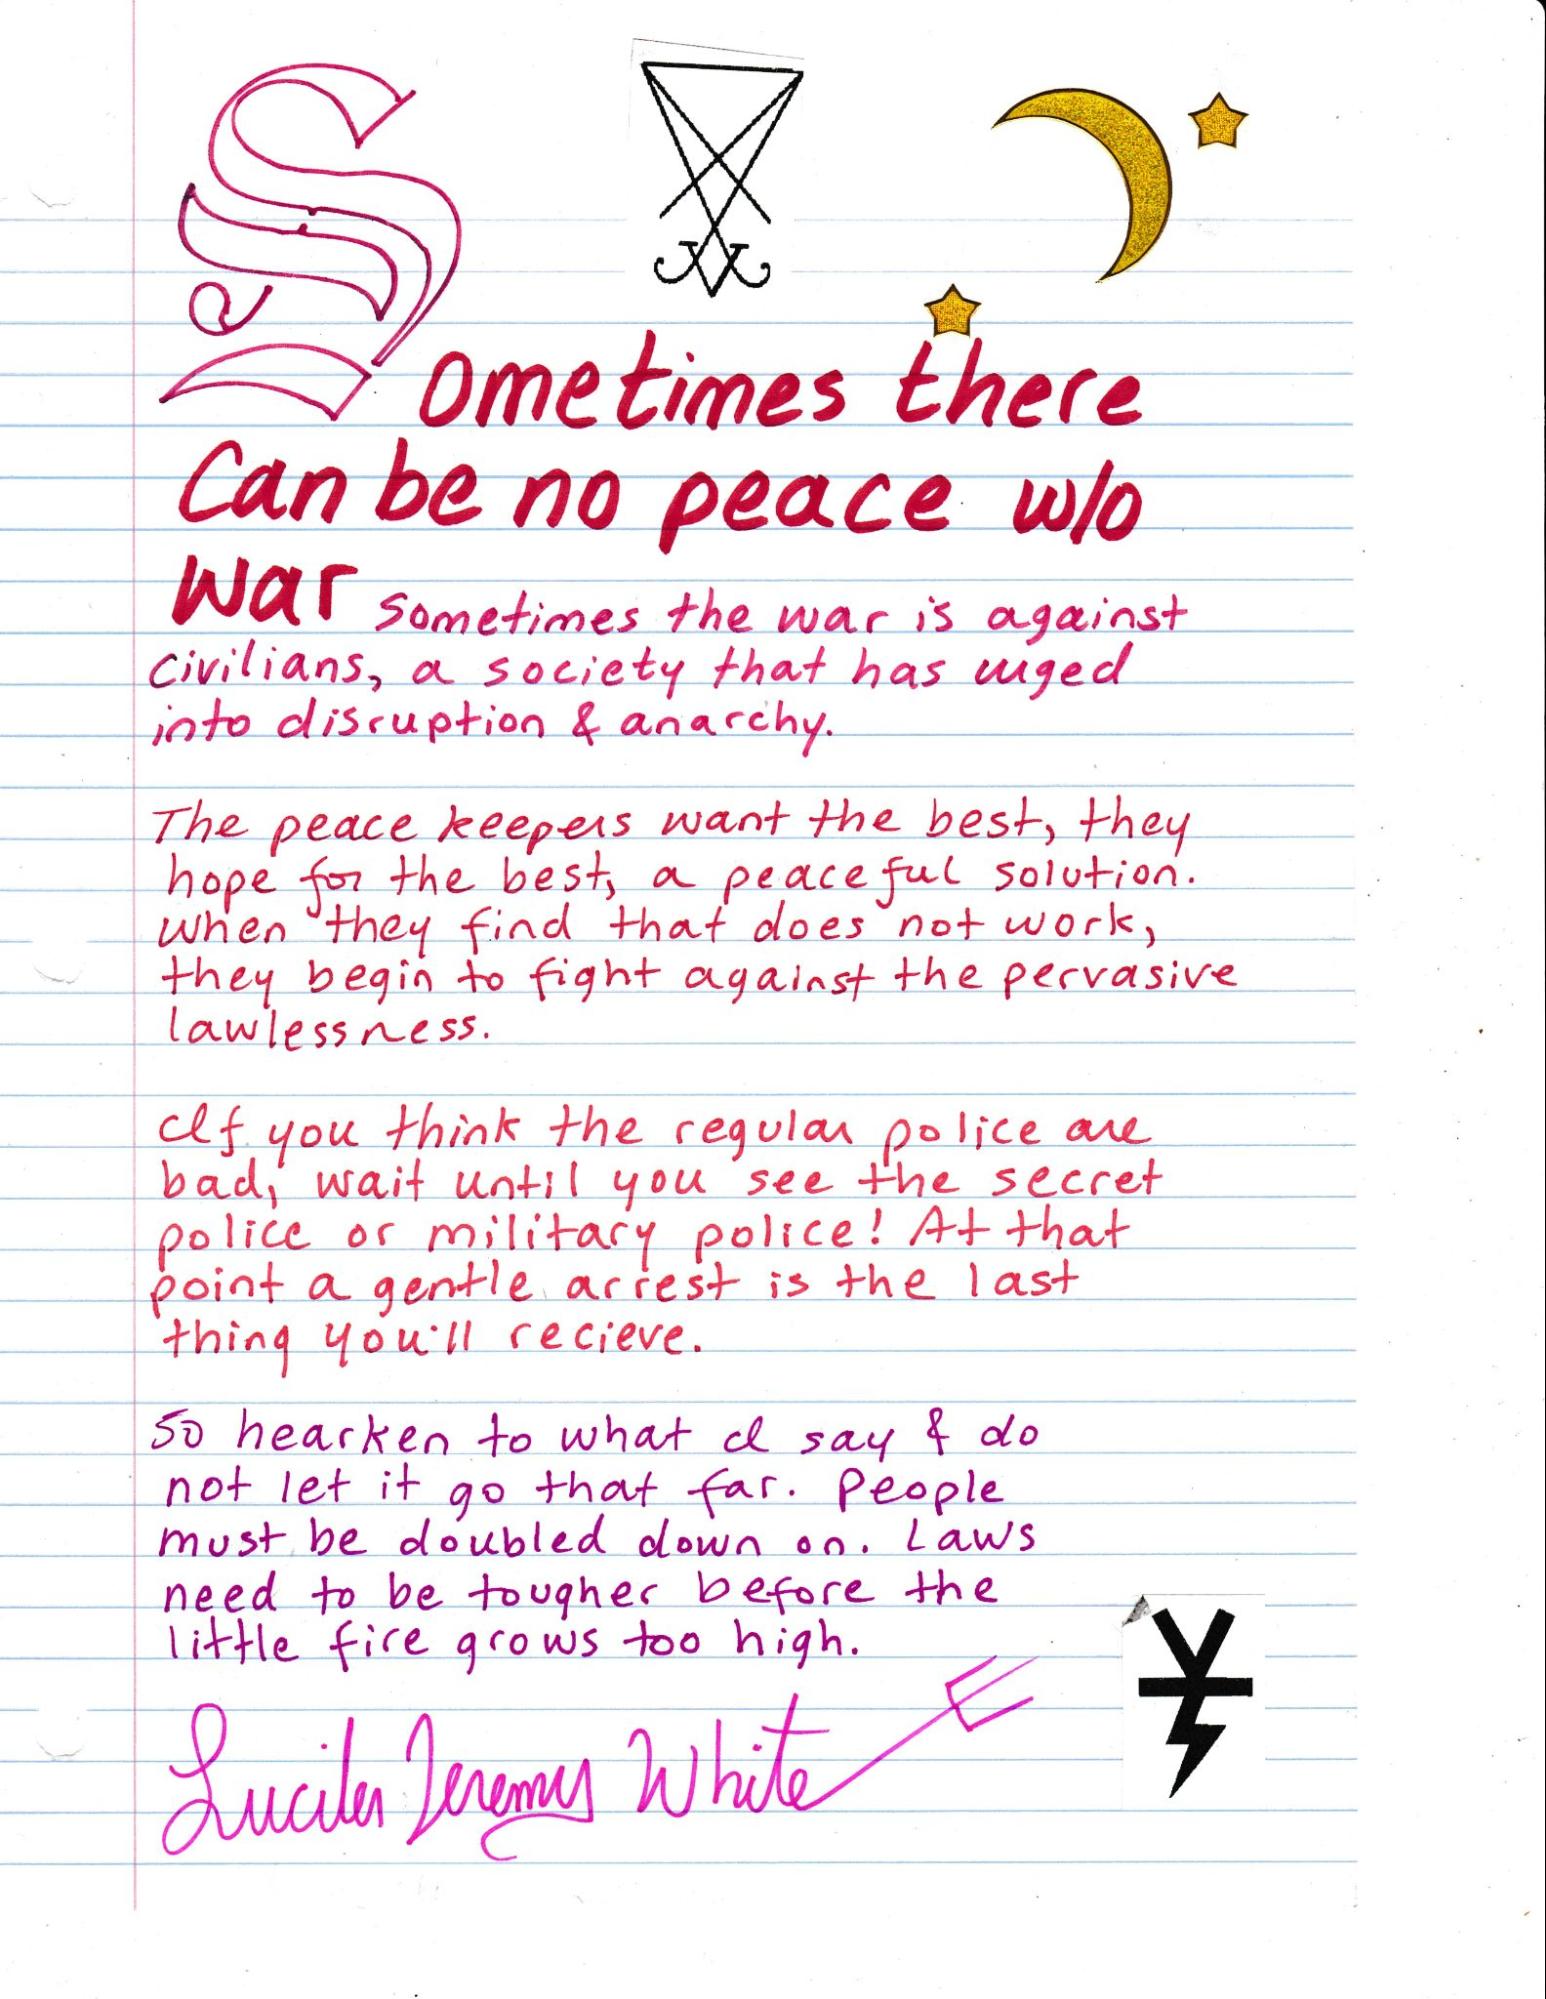 Sometimes there
Can be no peace w/o
war sometimes the war is against
civilians, a society that has urged
into disruption & anarchy.
The peace keepers want the best, they
hope for the best, a peaceful solution.
when they find that does not work,
they begin to fight against the pervasive
lawlessness.
If you think the regular police are
bad, wait until you see the secret
police or military police! At that
point a gentle arrest is the last
thing you'll recieve.
So hearken to what I say & do
not let it go that far. People
must be doubled down on. Laws
need to be tougher before the
little fire grows too high.
Lucifer Jeremy White